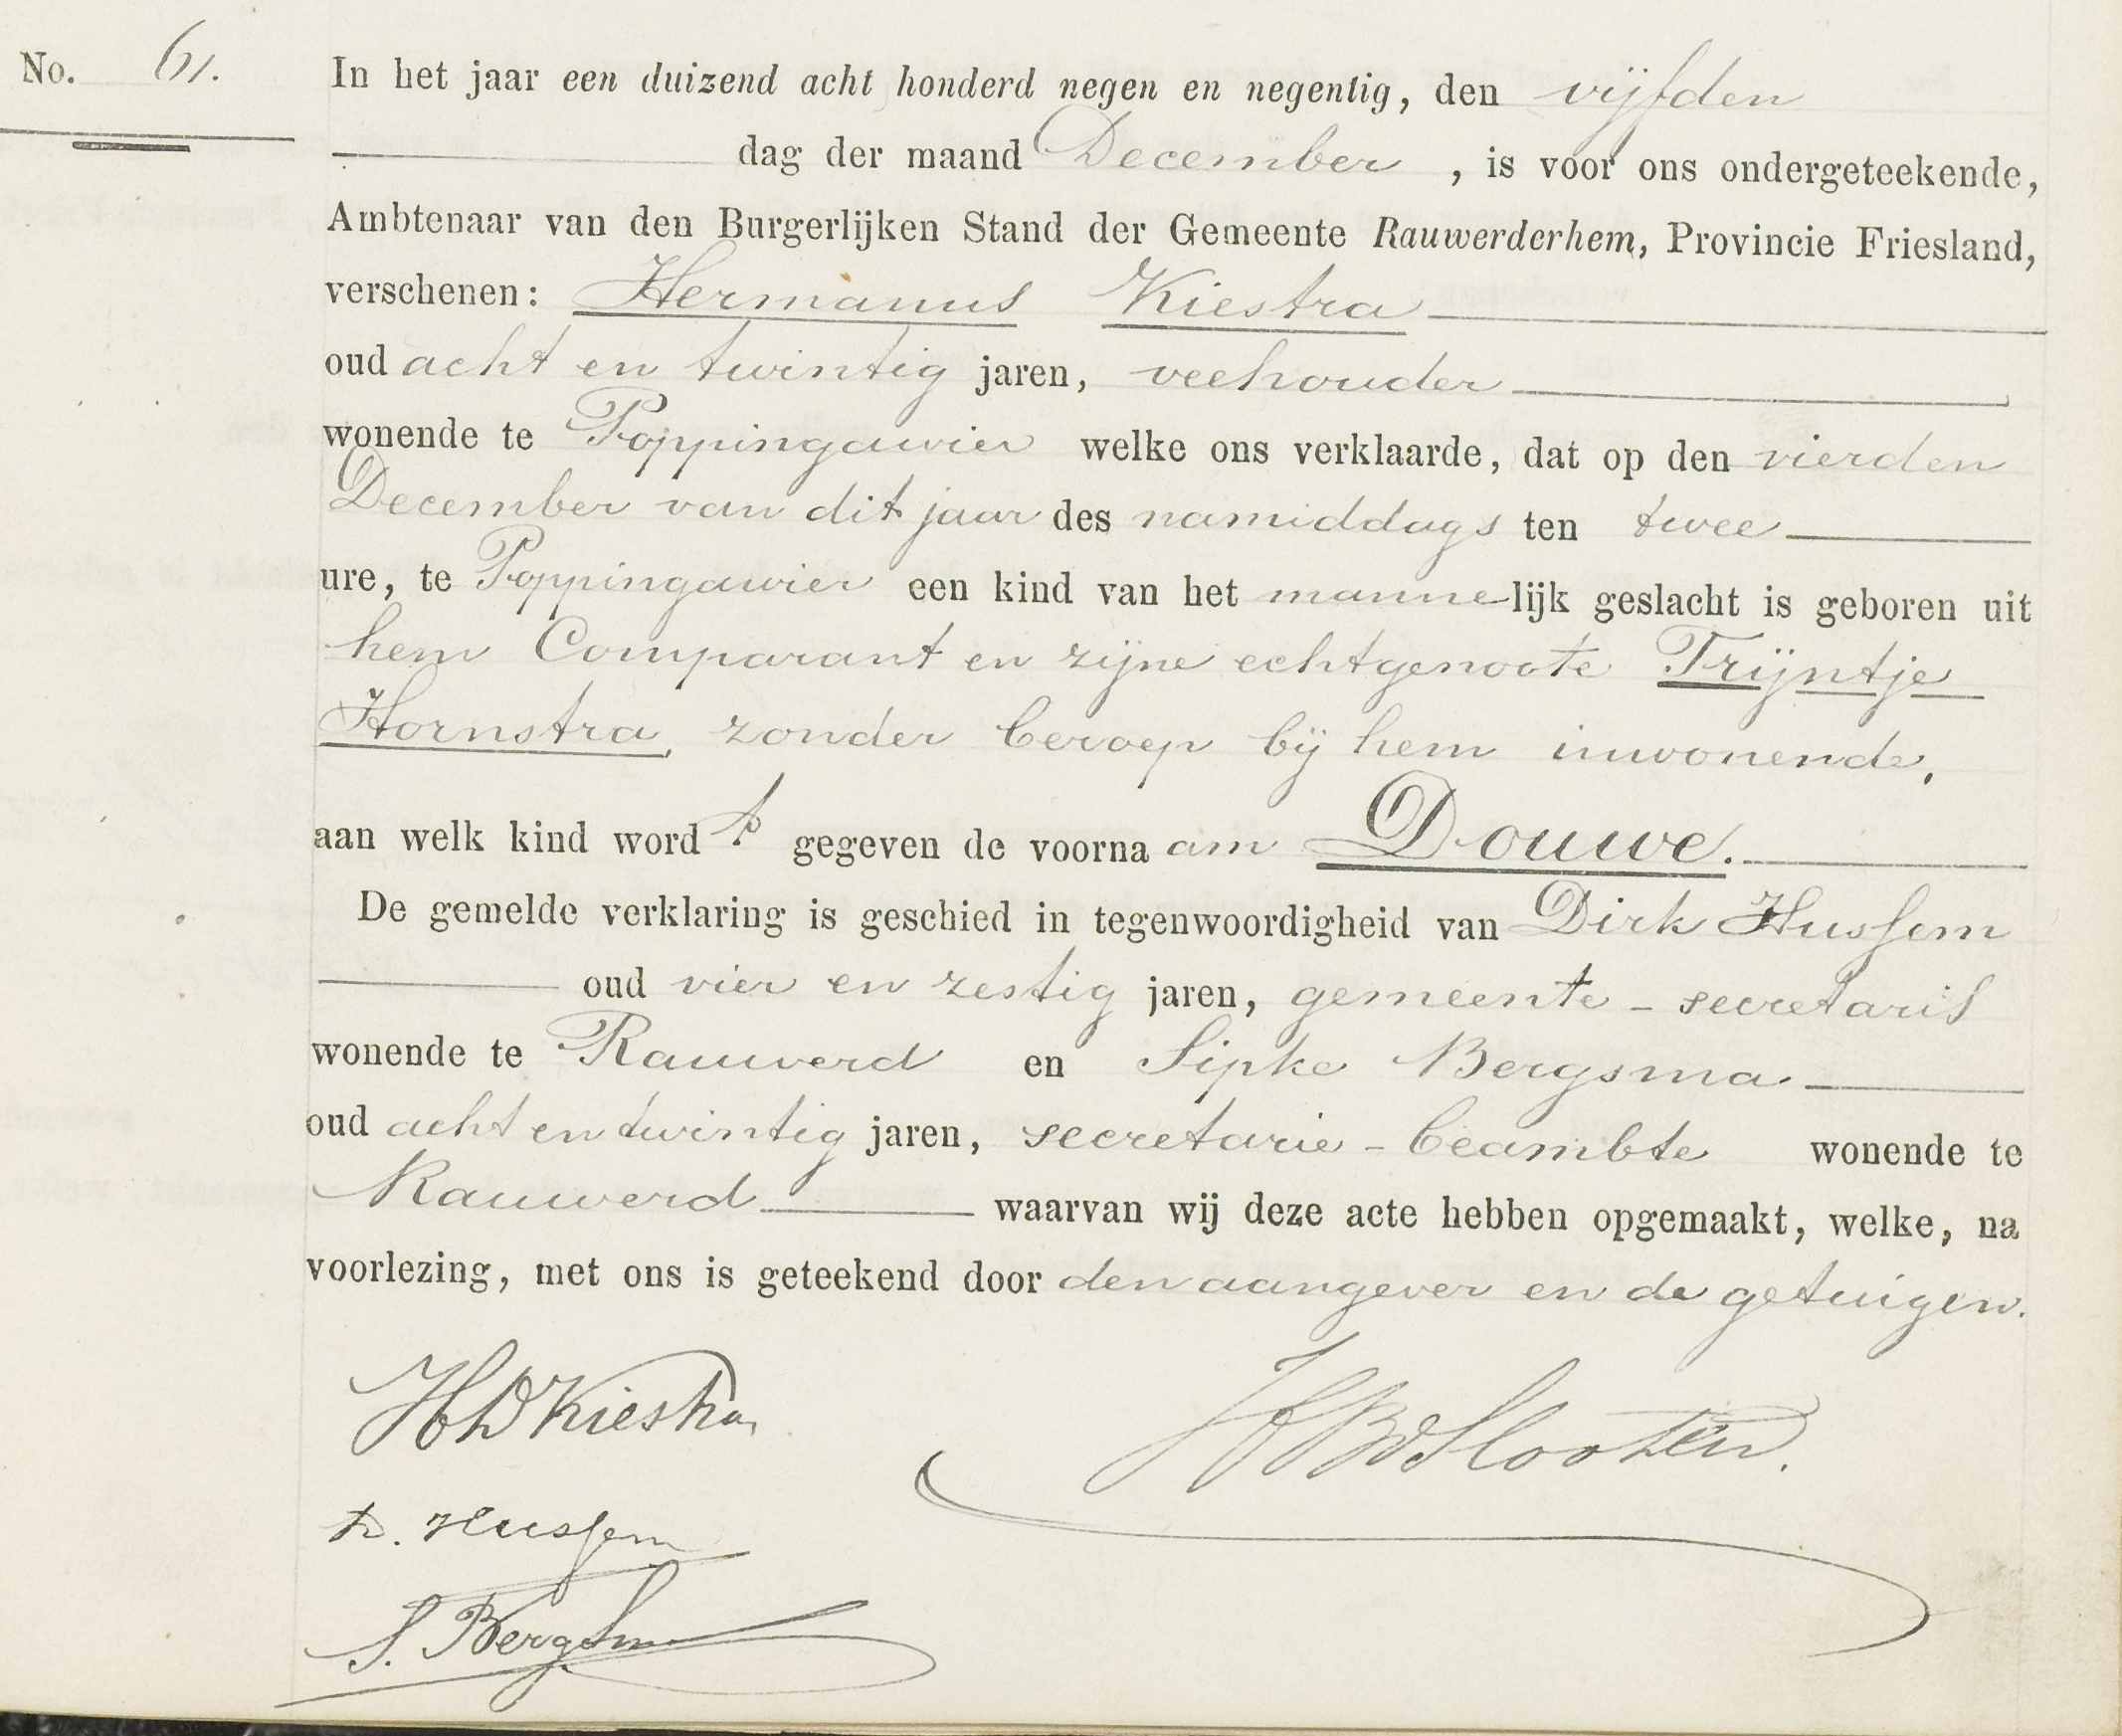 No. 61.
In het jaar een duizend acht honderd negen en negentig, den vijfden
dag der maand December, is voor ons ondergeteekende,
Ambtenaar van den Burgerlijken Stand der Gemeente Rauwerderhem, Provincie Friesland,
verschenen: Hermanus Kiestra
oud acht en twintig jaren, veehouder
wonende te Poppingawier welke ons verklaarde, dat op den vierden
December van dit jaar des namiddags ten twee
ure, te Poppingawier een kind van het mannelijk geslacht is geboren uit
hem Comparant en zijne echtgenoote Trijntje
Hornstra, zonder beroep bij hem inwonende,
aan welk kind wordt gegeven de voornaam Douwe.
De gemelde verklaring is geschied in tegenwoordigheid van Dirk Hussem
oud vier en zestig jaren, gemeente-secretaris
wonende te Rauwerd en Sipke Bergsma
oud acht en twintig jaren, secretarie-beambte wonende te
Rauwerd waarvan wij deze acte hebben opgemaakt, welke, na
voorlezing, met ons is geteekend door den aangever en de getuigen.
HDKiestra
Slooten.
D. Hussem
S. Bergsma